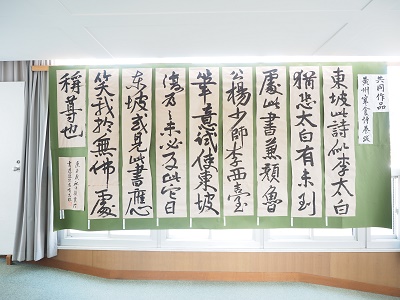 共同作品
黄州寒食詩巻跋
東坡此詩似李太白
猶恐太白有未到
處此書兼顔魯
公楊少師李西臺
筆意試使東坡
復為之未必及此它日
東坡或見此書應
笑我於無佛處
稱尊也